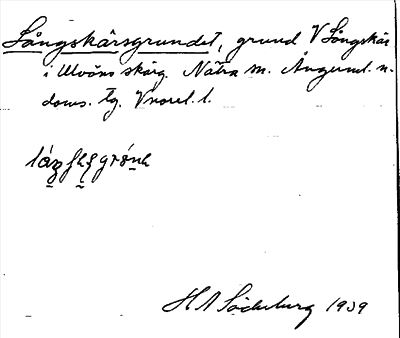 Långskärsgrundet, grund V Långskär
i Ulvöns skärg. Nätra sn. Ångerml. n.
doms. tg. Vnorrl. l.
H A Söderberg 1939